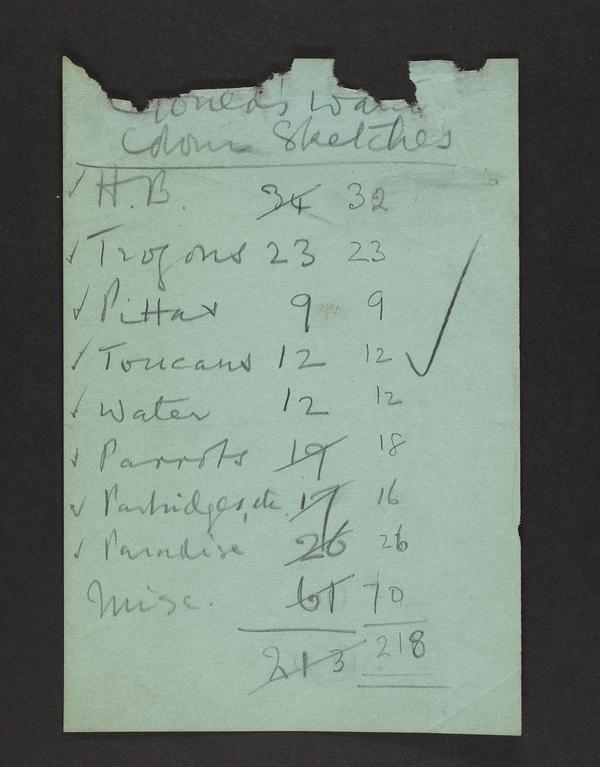 Gould's Water
Colour Sketches
✓ H.B. 34 32
✓ Trogons 23 23
✓ Pittas 9 9
✓ Toucans 12 12 ✓
✓ Water 12 12
✓ Parrots 19 18
✓ Partridges, etc. 17 16
✓ Paradise 26 26
Misc. 61 70
213 218